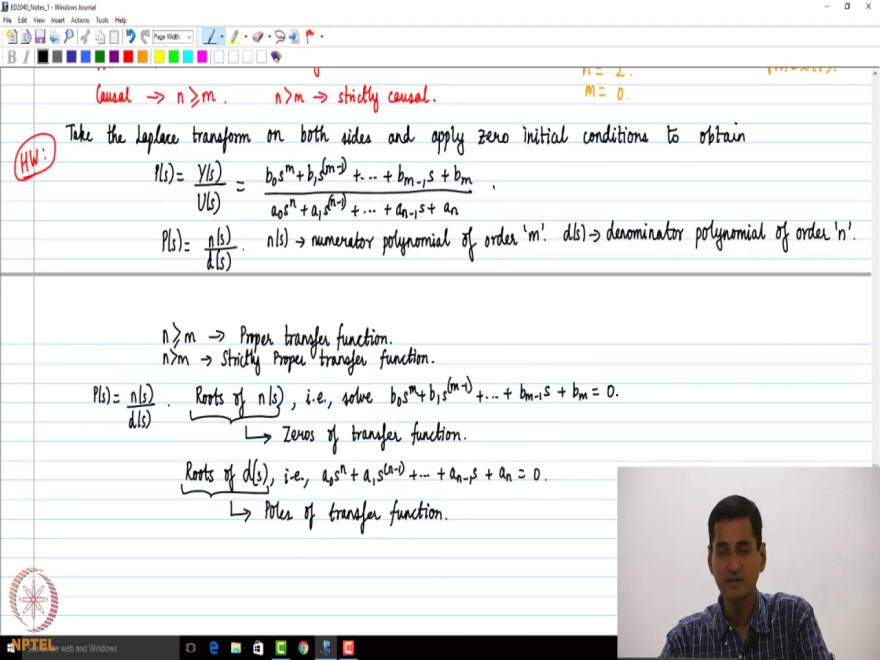 ED2040_Notes_1 - Windows Journal
File Edit View Insert Actions Tools Help
Page Width
B I
n = 2.
Causal → n ≥ m. n > m → strictly causal.
m = 0.
HW:
Take the Laplace transform on both sides and apply zero initial conditions to obtain
P(s) = Y(s)/U(s) = (b₀sᵐ + b₁s⁽ᵐ⁻¹⁾ + ... + bₘ₋₁s + bₘ)/(a₀sⁿ + a₁s⁽ⁿ⁻¹⁾ + ... + aₙ₋₁s + aₙ).
P(s) = n(s)/d(s). n(s) → numerator polynomial of order 'm'. d(s) → denominator polynomial of order 'n'.
n ≥ m → Proper transfer function.
n > m → Strictly Proper transfer function.
P(s) = n(s)/d(s). Roots of n(s), i.e., solve b₀sᵐ + b₁s⁽ᵐ⁻¹⁾ + ... + bₘ₋₁s + bₘ = 0.
↳ Zeros of transfer function.
Roots of d(s), i.e., a₀sⁿ + a₁s⁽ⁿ⁻¹⁾ + ... + aₙ₋₁s + aₙ = 0.
↳ Poles of transfer function.
NPTEL
the web and Windows